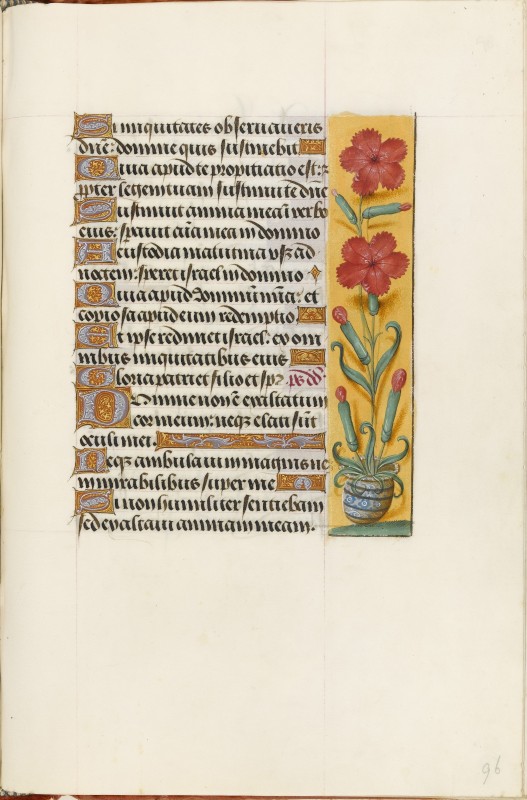 Si iniquitates obseruaueris
dñe: domine quis sustinebit
Quia apud te propitiatio est: ⁊
ꝓpter legem tuam sustinui te dñe
Sustinuit anima mea ĩ verbo
eius: sperauit aĩa mea in domino
A custodia matutina vsq̃ ad
noctem: speret israel in domino
Quia apud dominum mĩa: et
copiosa apud eum redemptio
Et ipse redimet israel: ex om
nibus iniquitatibus eius
Gloria patri et filio et sp̃. ps. dd̃
Domine non ẽ exaltatum
cor meum: neqꝫ elati sũt
oculi mei.
Neqꝫ ambulaui in magnis ne
in mirabilibus super me
Si non humiliter sentiebam
sed exaltaui animam meam.
96